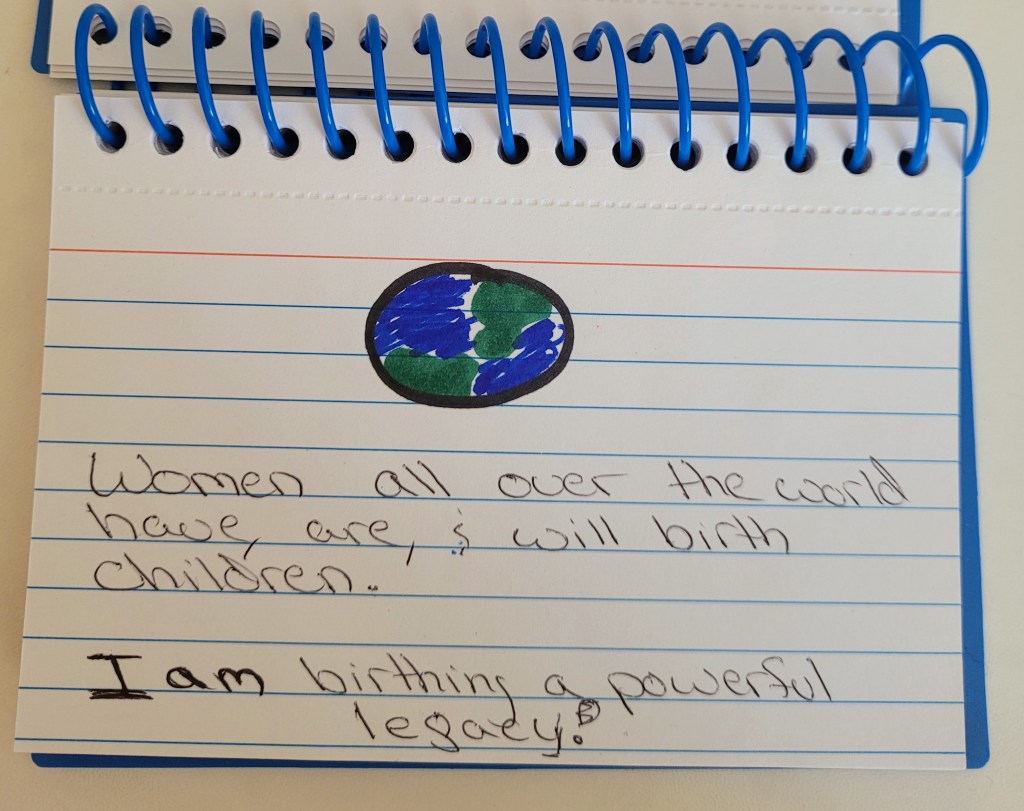 Women all over the world
have, are, & will birth
children.
I am birthing a powerful
legacy!